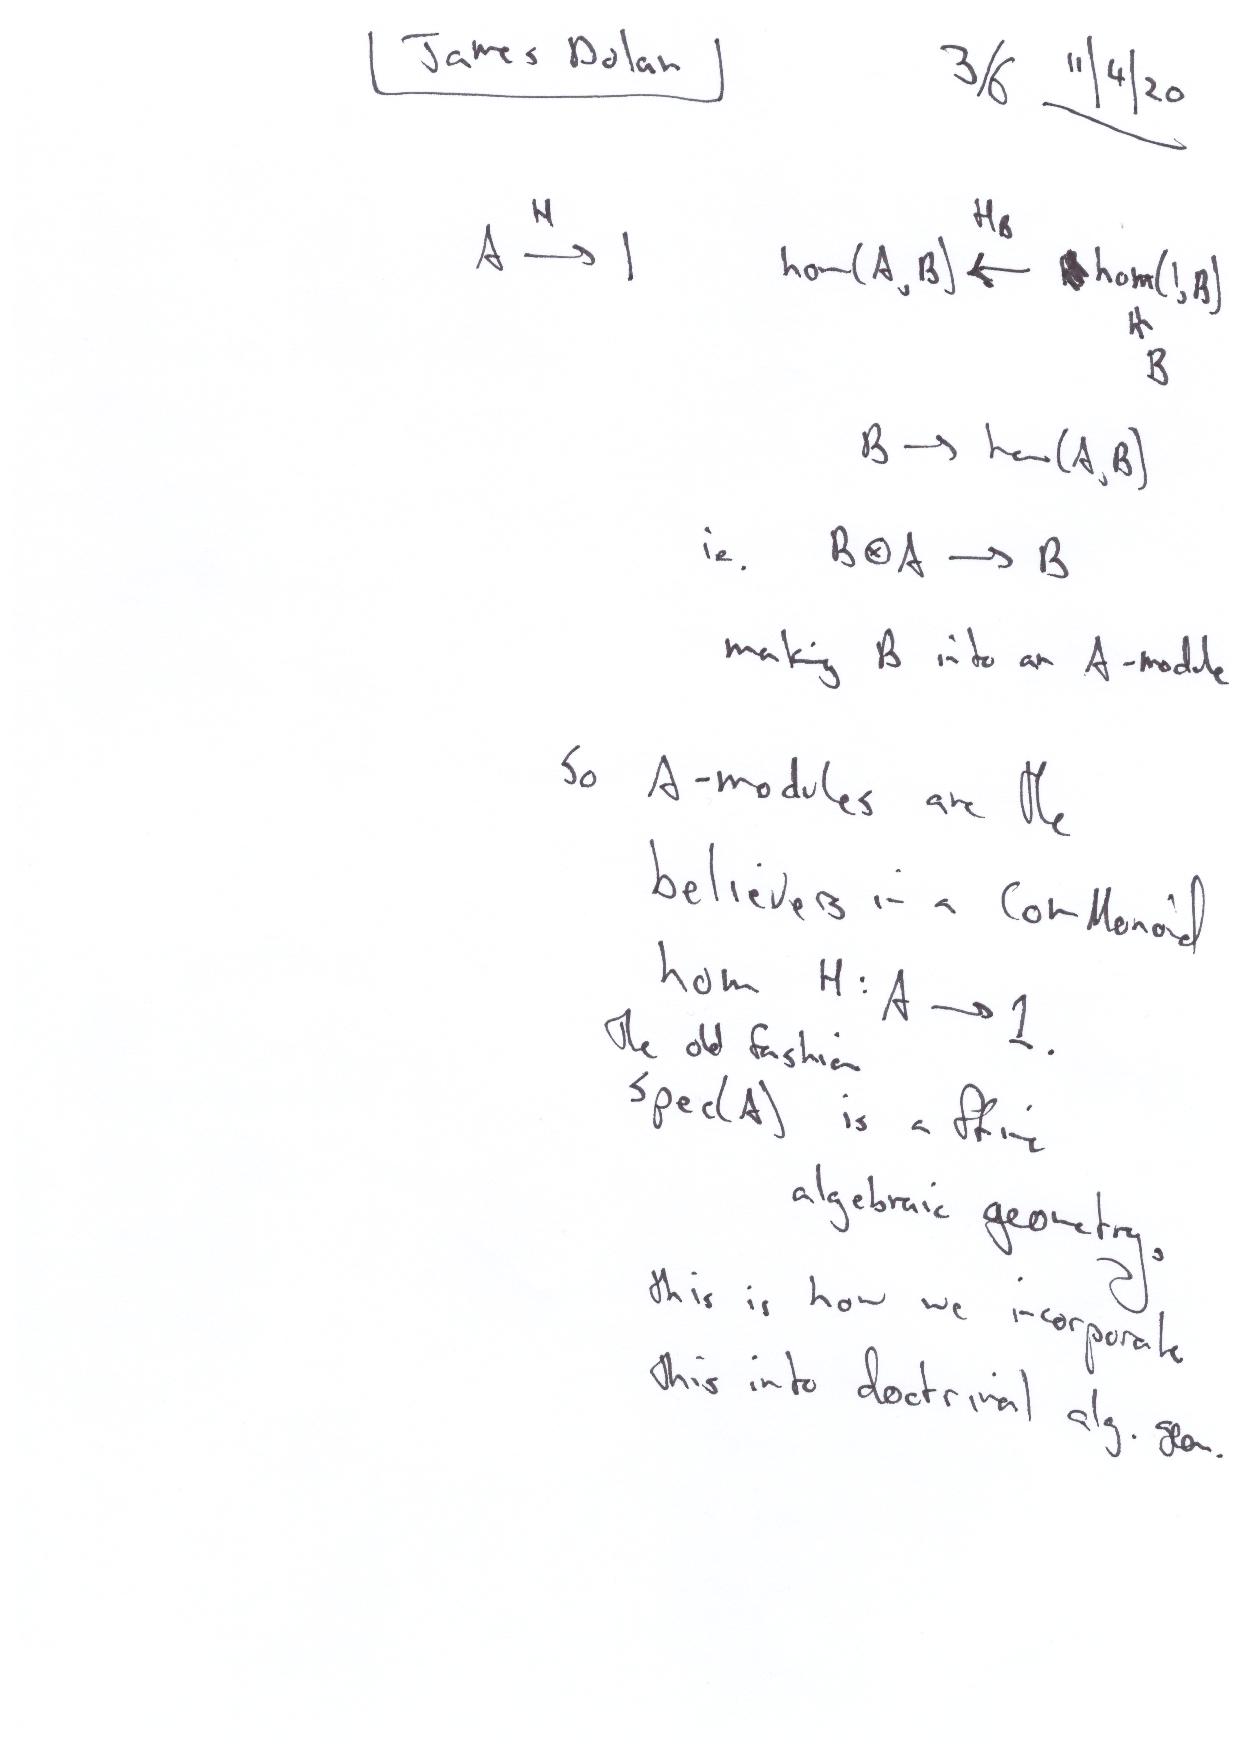 James Dolan 3/6 11/4/20
A →^H 1 hom(A,B) ←^{H_B} hom(1,B)
B
B → hom(A,B)
ie. B⊗A → B
making B into an A-module
So A-modules are the
believers in a ComMonoid
hom H: A → 1.
the old fashion
spec(A) is affine
algebraic geometry.
this is how we incorporate
this into doctrinal alg. geom.